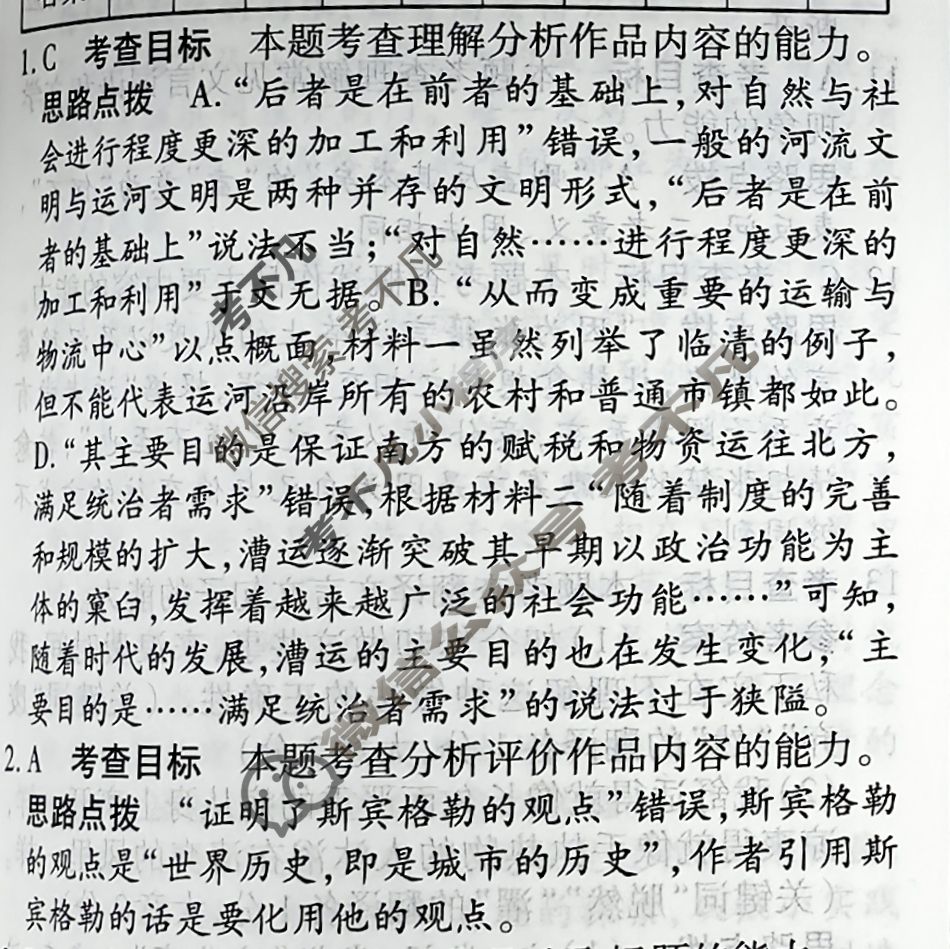 1.C 考查目标 本题考查理解分析作品内容的能力。
思路点拨 A.“后者是在前者的基础上,对自然与社
会进行程度更深的加工和利用”错误,一般的河流文
明与运河文明是两种并存的文明形式,“后者是在前
者的基础上”说法不当;“对自然……进行程度更深的
加工和利用”于文无据。B.“从而变成重要的运输与
物流中心”以点概面,材料一虽然列举了临清的例子,
但不能代表运河沿岸所有的农村和普通市镇都如此。
D.“其主要目的是保证南方的赋税和物资运往北方,
满足统治者需求”错误,根据材料二“随着制度的完善
和规模的扩大,漕运逐渐突破其早期以政治功能为主
体的窠臼,发挥着越来越广泛的社会功能……”可知,
随着时代的发展,漕运的主要目的也在发生变化,“主
要目的是……满足统治者需求”的说法过于狭隘。
2.A 考查目标 本题考查分析评价作品内容的能力。
思路点拨 “证明了斯宾格勒的观点”错误,斯宾格勒
的观点是“世界历史,即是城市的历史”,作者引用斯
宾格勒的话是要化用他的观点。
考不凡
微信搜索 考不凡
考不凡小程序
微信公众号 考不凡